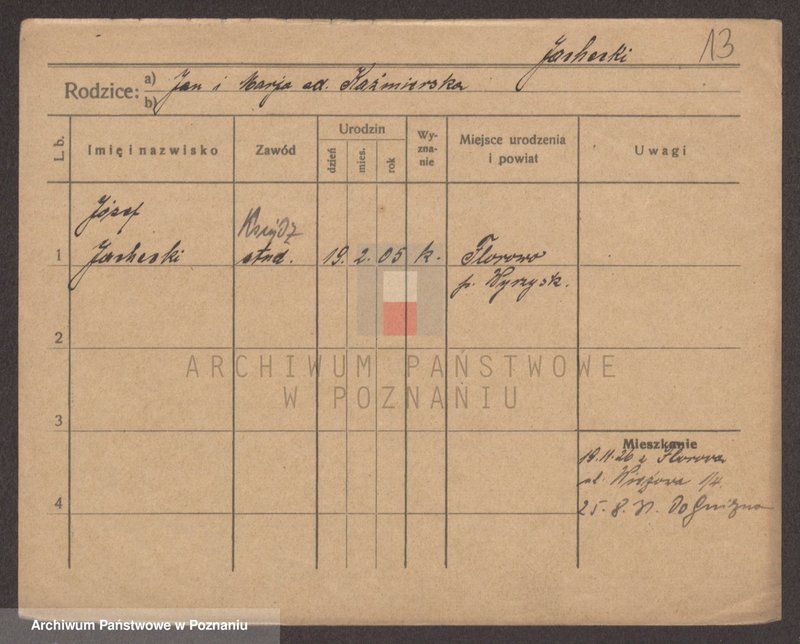 13
Jasheski
Rodzice: a) Jan i Marja od. Kaźmierska
b)
L. b. Imię i nazwisko Zawód Urodzin dzień mies. rok Wy-zna-nie Miejsce urodzenia i powiat Uwagi
Józef Ksiądz
1 Jasheski stud. 19. 2. 05 k. Florowo
p. Wyrzysk.
2
ARCHIWUM PAŃSTWOWE
W POZNANIU
3
Mieszkanie
19.11.26 z Florowa
ul. 1/4.
4 25. 8. 31. do Gniezna
Archiwum Państwowe w Poznaniu